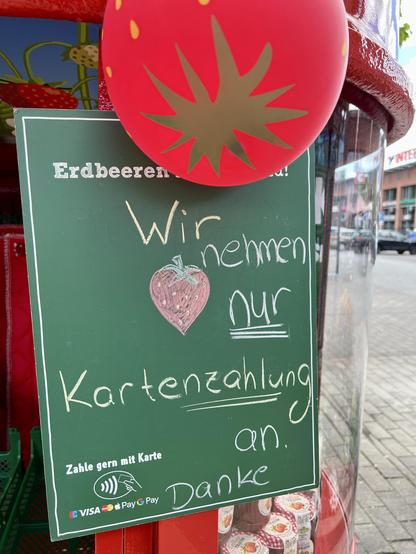 Erdbeeren
Wir
nehmen
nur
Kartenzahlung
an.
Danke
Zahle gern mit Karte
VISA Pay G Pay